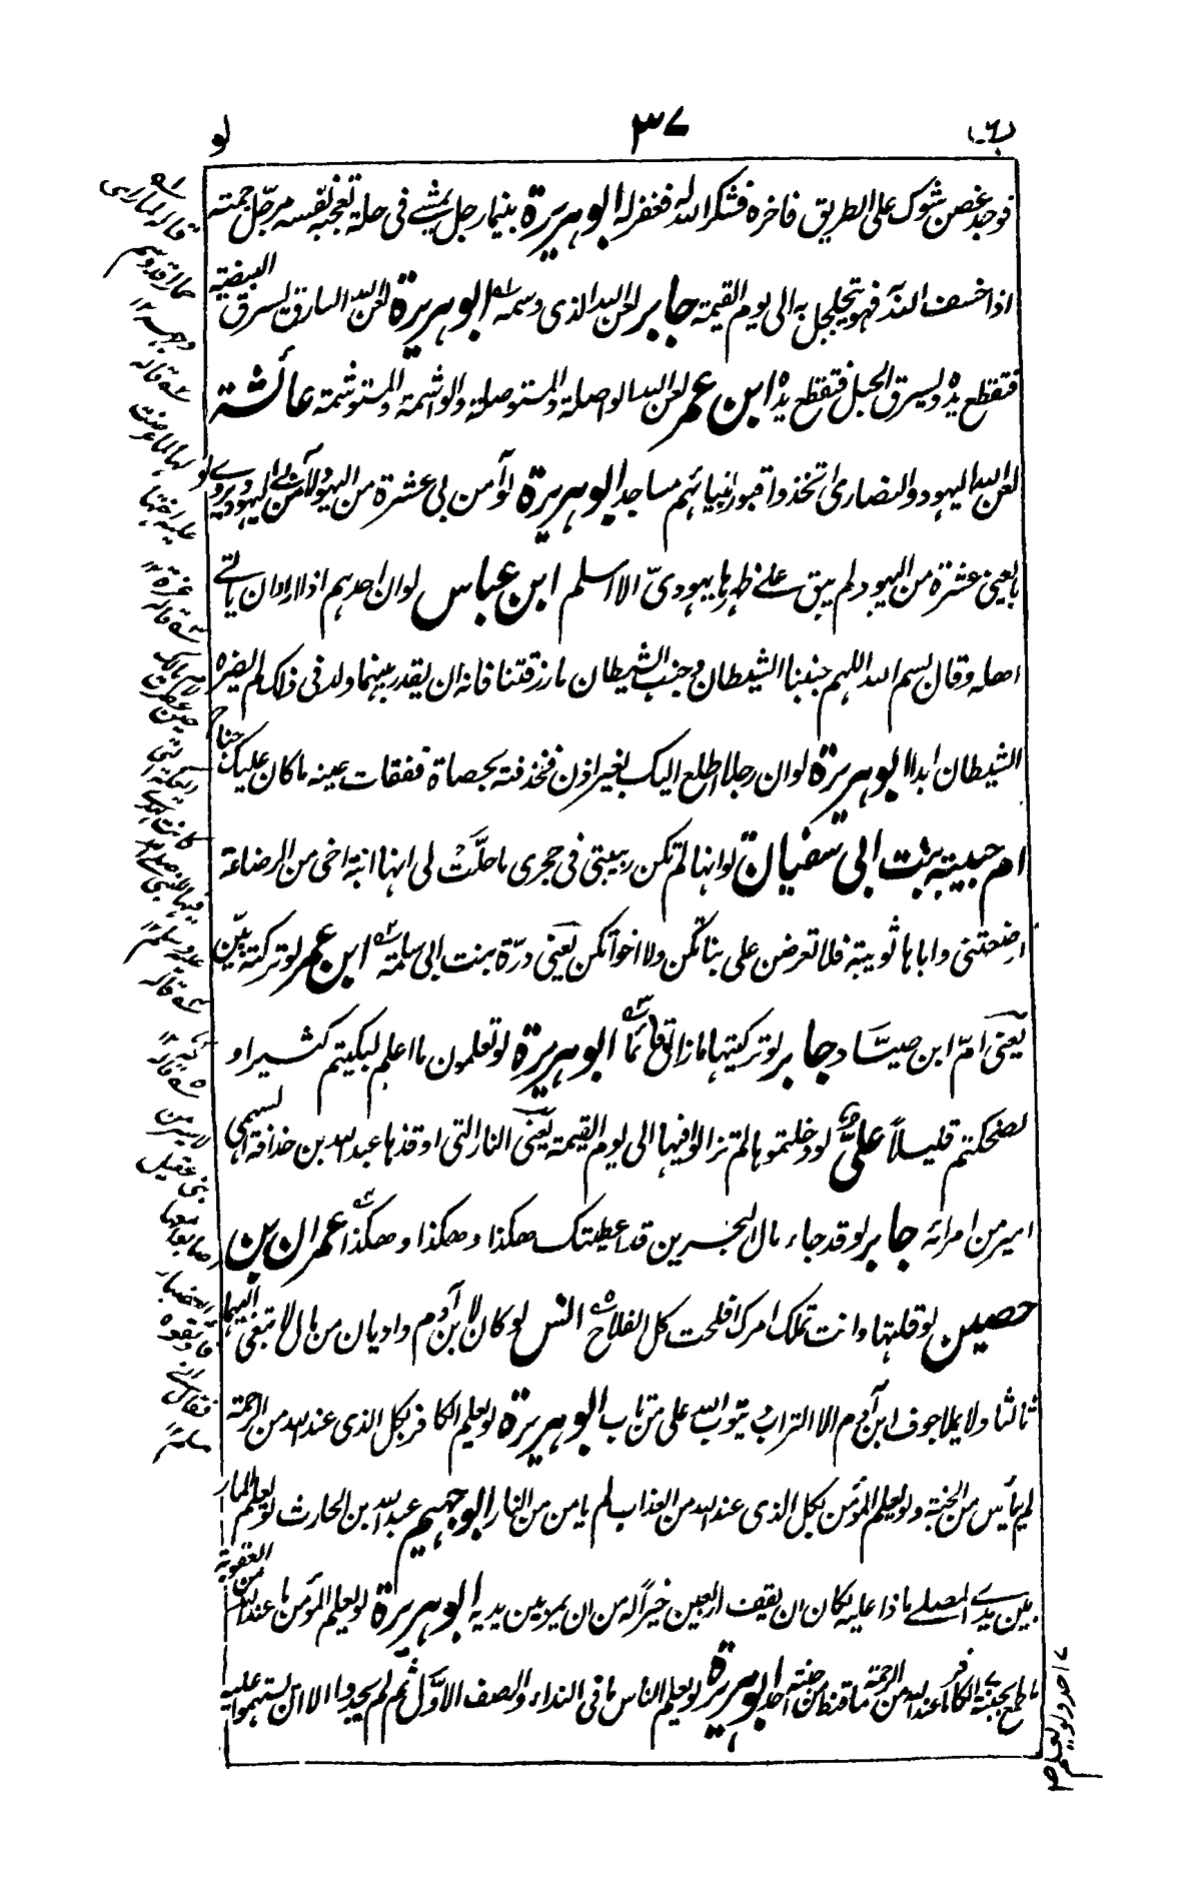 (ب٦) ٣٧ لو
فوجد غصن شوك على الطريق فاخره فشكر الله له فغفر له ابو هريرة بينما رجل يمشے فى حلة تعجبه نفسه مرجّل جمته
اذا خسف الله به فهو يتجلجل به الى يوم القيمة جابر لعن الله الذى وسمه ابو هريرة لعن الله السارق يسرق البيضة
فتقطع يده ويسرق الحبل فتقطع يده ابن عمر لعن الله الواصلة والمستوصلة والواشمة والمستوشمة عائشة
لعن الله اليهود والنصارى اتخذوا قبور انبيائهم مساجد ابو هريرة لو آمن بى عشرة من اليهود لآمن بى اليهود ويروے لو
بايعنى عشرة من اليهود لم يبق علے ظهرها يهودىّ الا اسلم ابن عباس لو ان احدهم اذا اراد ان ياتے
اهله وقال بسم الله اللهم جنبنا الشيطان وجنب الشيطان ما رزقتنا فانه ان يقدر بينهما ولد فى ذلك لم يضره
الشيطان ابدا ابو هريرة لو ان رجلا اطلع اليك بغير اذن فخذفته بحصاة ففقات عينه ما كان عليك جناح
ام حبيبة بنت ابى سفيان لو انها لم تكن ربيبتى فى حجرى ما حلّت لى انها ابنة اخى من الرضاعة
ارضعتنى واباها ثويبة فلا تعرضن على بناتكن ولا اخواتكن يعنى درّة بنت ابى سلمة ابن عمر لو تركته بيّن
يعنى امّ ابن صيّاد جابر لو تركتيها ما زال قائما ابو هريرة لو تعلمون ما اعلم لبكيتم كثيرا و
لضحكتم قليلاً علىّ لو دخلتموها لم تزالوا فيها الى يوم القيمة يعنى النار التى اوقدها عبد الله بن حذافة السهمى
امير من امرائه جابر لو قد جاء مال البحرين قد اعطيتك هكذا وهكذا وهكذا عمران بن
حصين لو قلتها وانت تملك امرك افلحت كل الفلاح انس لو كان لابن آدم واديان من مال لابتغى اليهما
ثالثا ولا يملا جوف ابن آدم الا التراب ويتوب الله على من تاب ابو هريرة لو يعلم الكافر بكل الذى عند الله من الرحمة
لم ييأس من الجنة ولو يعلم المؤمن بكل الذى عند الله من العذاب لم يامن من النار ابو جهيم عبد الله بن الحارث لو يعلم المار
بين يدے المصلے ماذا عليه لكان ان يقف اربعين خيراً له من ان يمر بين يديه ابو هريرة لو يعلم المؤمن ما عند الله من العقوبة
ما طمع بجنته احد ولو يعلم الكافر ما عند الله من الرحمة ما قنط من جنته احد ابو هريرة لو يعلم الناس ما فى النداء والصف الاوّل ثم لم يجدوا الا ان يستهموا عليه